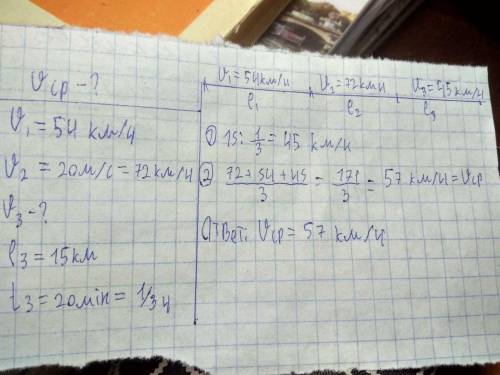 Vср - ?
V₁ = 54 км/ч
V₂ = 20м/с = 72 км/ч
V₃ - ?
l₃ = 15 км
t₃ = 20 мін = 1/3 ч
V₁ = 54 км/ч V₂ = 72 км/ч V₃ = 45 км/ч
l₁ l₂ l₃
① 15 : 1/3 = 45 км/ч
② (72 + 54 + 45)/3 = 171/3 = 57 км/ч = Vср
Ответ: Vср = 57 км/ч